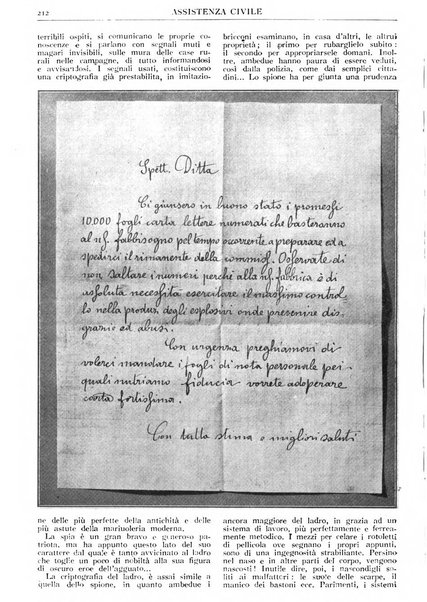 212
ASSISTENZA CIVILE
terribili ospiti, si comunicano le proprie co-
noscenze e si parlano con segnali muti e
magari invisibili, sulle mura delle case ru-
rali nelle campagne, di tutto informandosi
e avvisandosi. I segnali usati, costituiscono
una criptografia già prestabilita, in imitazio-
bricconi esaminano, in casa d'altri, le altrui
proprietà; il primo per rubarglielo subito:
il secondo per appropriarsene domani. Inol-
tre, ambedue hanno paura di essere veduti,
così dalla polizia, come dai semplici citta-
dini... Lo spione ha per giunta una prudenza
Spett. Ditta
Ci giunsero in buono stato i promessi
10.000 fogli carta lettere numerati che basteranno
al ns. fabbisogno pel tempo occorrente a preparare ed a
spedirci il rimanente della commiss. Osservate di
non saltare i numeri perchè alla ns. fabbrica è di
assoluta necessità esercitare il massimo control
lo nella produz. degli esplosivi onde prevenire dis.
grazie ed abusi.
Con urgenza preghiamovi di
volerci mandare i fogli di nota personale pei
quali nutriamo fiducia vorrete adoperare
carta fortissima.
Con tutta stima e migliori saluti
ne delle più perfette della antichità e delle
più astute della mariuoleria moderna.
La spia è un gran bravo e generoso pa-
triota, ma ha appunto questo di cattivo: del
carattere dal quale è tanto avvicinato al ladro
che toglie un poco di nobiltà alla sua figura
di oscuro eroe dell'agguato...
La criptografia del ladro, è assai simile a
quella dello spione, in quanto ambedue i
ancora maggiore del ladro, in grazia ad un
sistema di lavoro, più perfettamente e ferrea-
mente metodico. I mezzi per celare i rotoletti
di pellicola ove segnano i propri appunti,
sono di una ingegnosità strabiliante. Persino
nel naso e in altre parti del corpo, vengono
nascosti! Inutile dire, poi, i nascondigli so-
liti ai malfattori: le suole delle scarpe, il
manico dei bastoni ecc. Per gli incontri, i